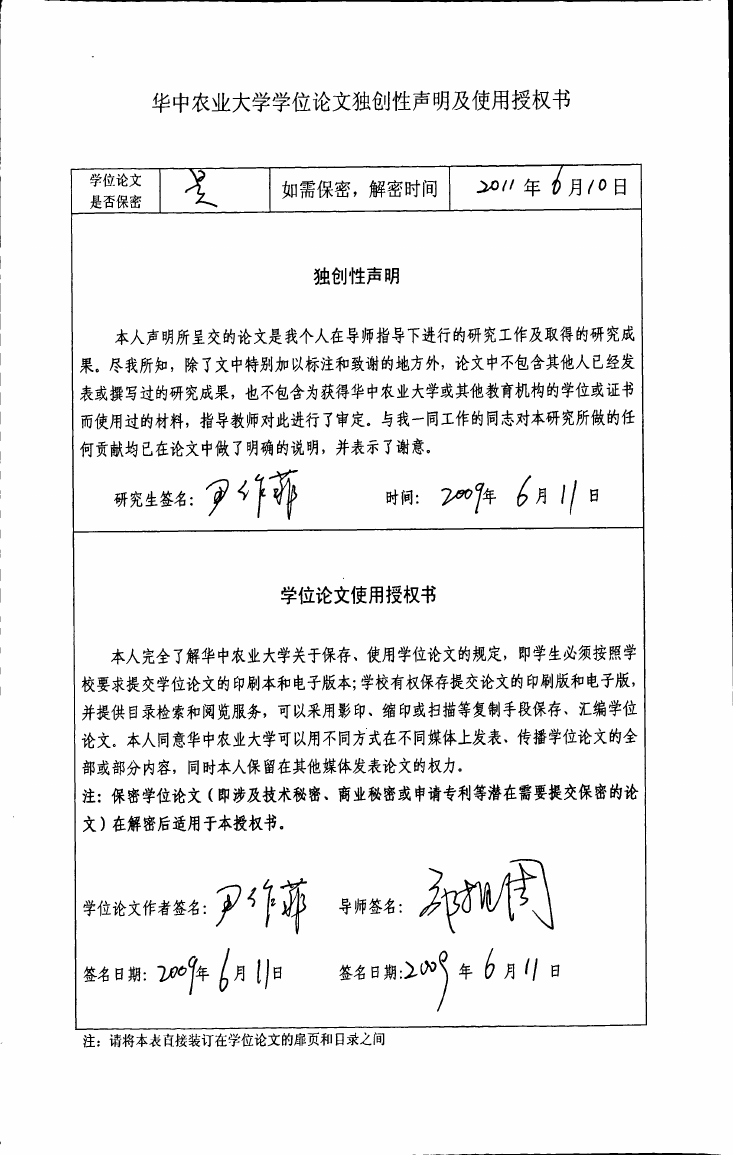 华中农业大学学位论文独创性声明及使用授权书
学位论文
是否保密
是
如需保密，解密时间
2011 年 6 月 10 日
独创性声明
本人声明所呈交的论文是我个人在导师指导下进行的研究工作及取得的研究成
果。尽我所知，除了文中特别加以标注和致谢的地方外，论文中不包含其他人已经发
表或撰写过的研究成果，也不包含为获得华中农业大学或其他教育机构的学位或证书
而使用过的材料，指导教师对此进行了审定。与我一同工作的同志对本研究所做的任
何贡献均已在论文中做了明确的说明，并表示了谢意。
研究生签名：尹作菲 时间： 2009年 6 月 11 日
学位论文使用授权书
本人完全了解华中农业大学关于保存、使用学位论文的规定，即学生必须按照学
校要求提交学位论文的印刷本和电子版本；学校有权保存提交论文的印刷版和电子版，
并提供目录检索和阅览服务，可以采用影印、缩印或扫描等复制手段保存、汇编学位
论文。本人同意华中农业大学可以用不同方式在不同媒体上发表、传播学位论文的全
部或部分内容，同时本人保留在其他媒体发表论文的权力。
注：保密学位论文（即涉及技术秘密、商业秘密或申请专利等潜在需要提交保密的论
文）在解密后适用于本授权书。
学位论文作者签名：尹作菲 导师签名：
签名日期：2009年 6 月 11 日 签名日期：2009 年 6 月 11 日
注：请将本表直接装订在学位论文的扉页和目录之间